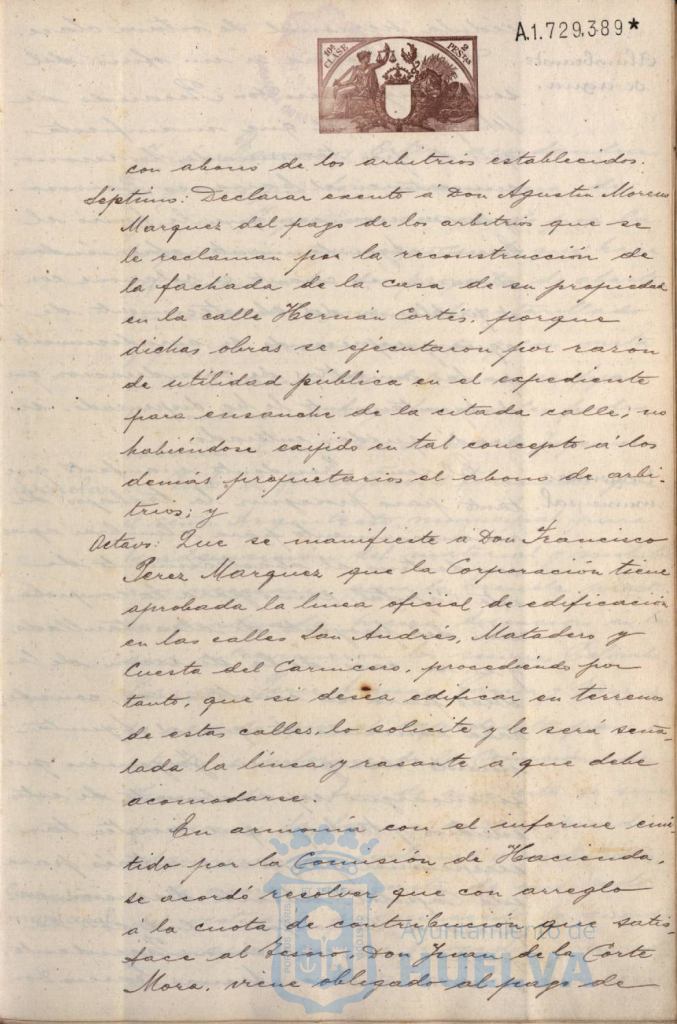 A.1.729.389*
10ª CLASE
2 PESETAS
con abono de los arbitrios establecidos.
Séptimo: Declarar exento á Don Agustín Moreno
Marquez del pago de los arbitrios que se
le reclaman por la reconstrucción de
la fachada de la casa de su propiedad
en la calle Hernán Cortés, porque
dichas obras se ejecutaron por razón
de utilidad pública en el expediente
para ensanche de la citada calle; no
habiéndose exijido en tal concepto á los
demás propietarios el abono de arbi-
trios; y
Octavo: Que se manifieste á Don Francisco
Perez Marquez que la Corporación tiene
aprobada la línea oficial de edificación
en las calles San Andrés, Matadero y
Cuesta del Carnicero, procediendo por
tanto, que si deséa edificar en terrenos
de estas calles, lo solicite y le será seña-
lada la línea y rasante á que debe
acomodarse.
En armonía con el informe emi-
tido por la Comisión de Hacienda,
se acordó resolver que con arreglo
á la cuota de contribución que satis-
face al Tesoro, Don Juan de la Corte
Mora, viene obligado al pago de
Ayuntamiento de
HUELVA